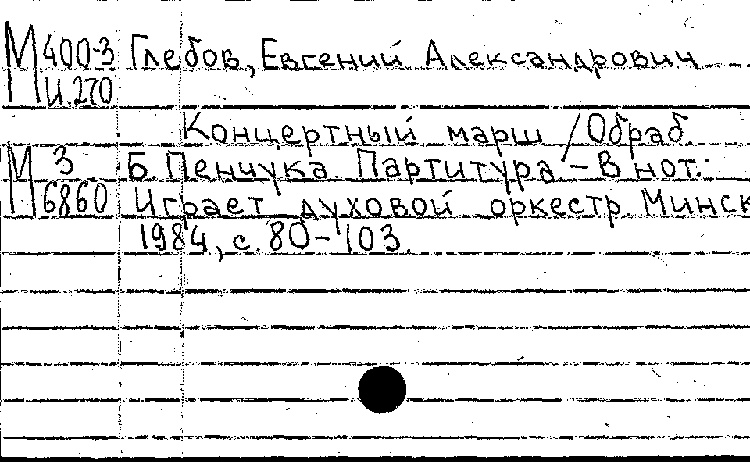 М 400-3 Глебов, Евгений Александрович
И.270
Концертный марш /Обраб.
М 3 Б. Пенчука Партитура – В нот.:
6860 Играет духовой оркестр. Минск
1984, с. 80–103.